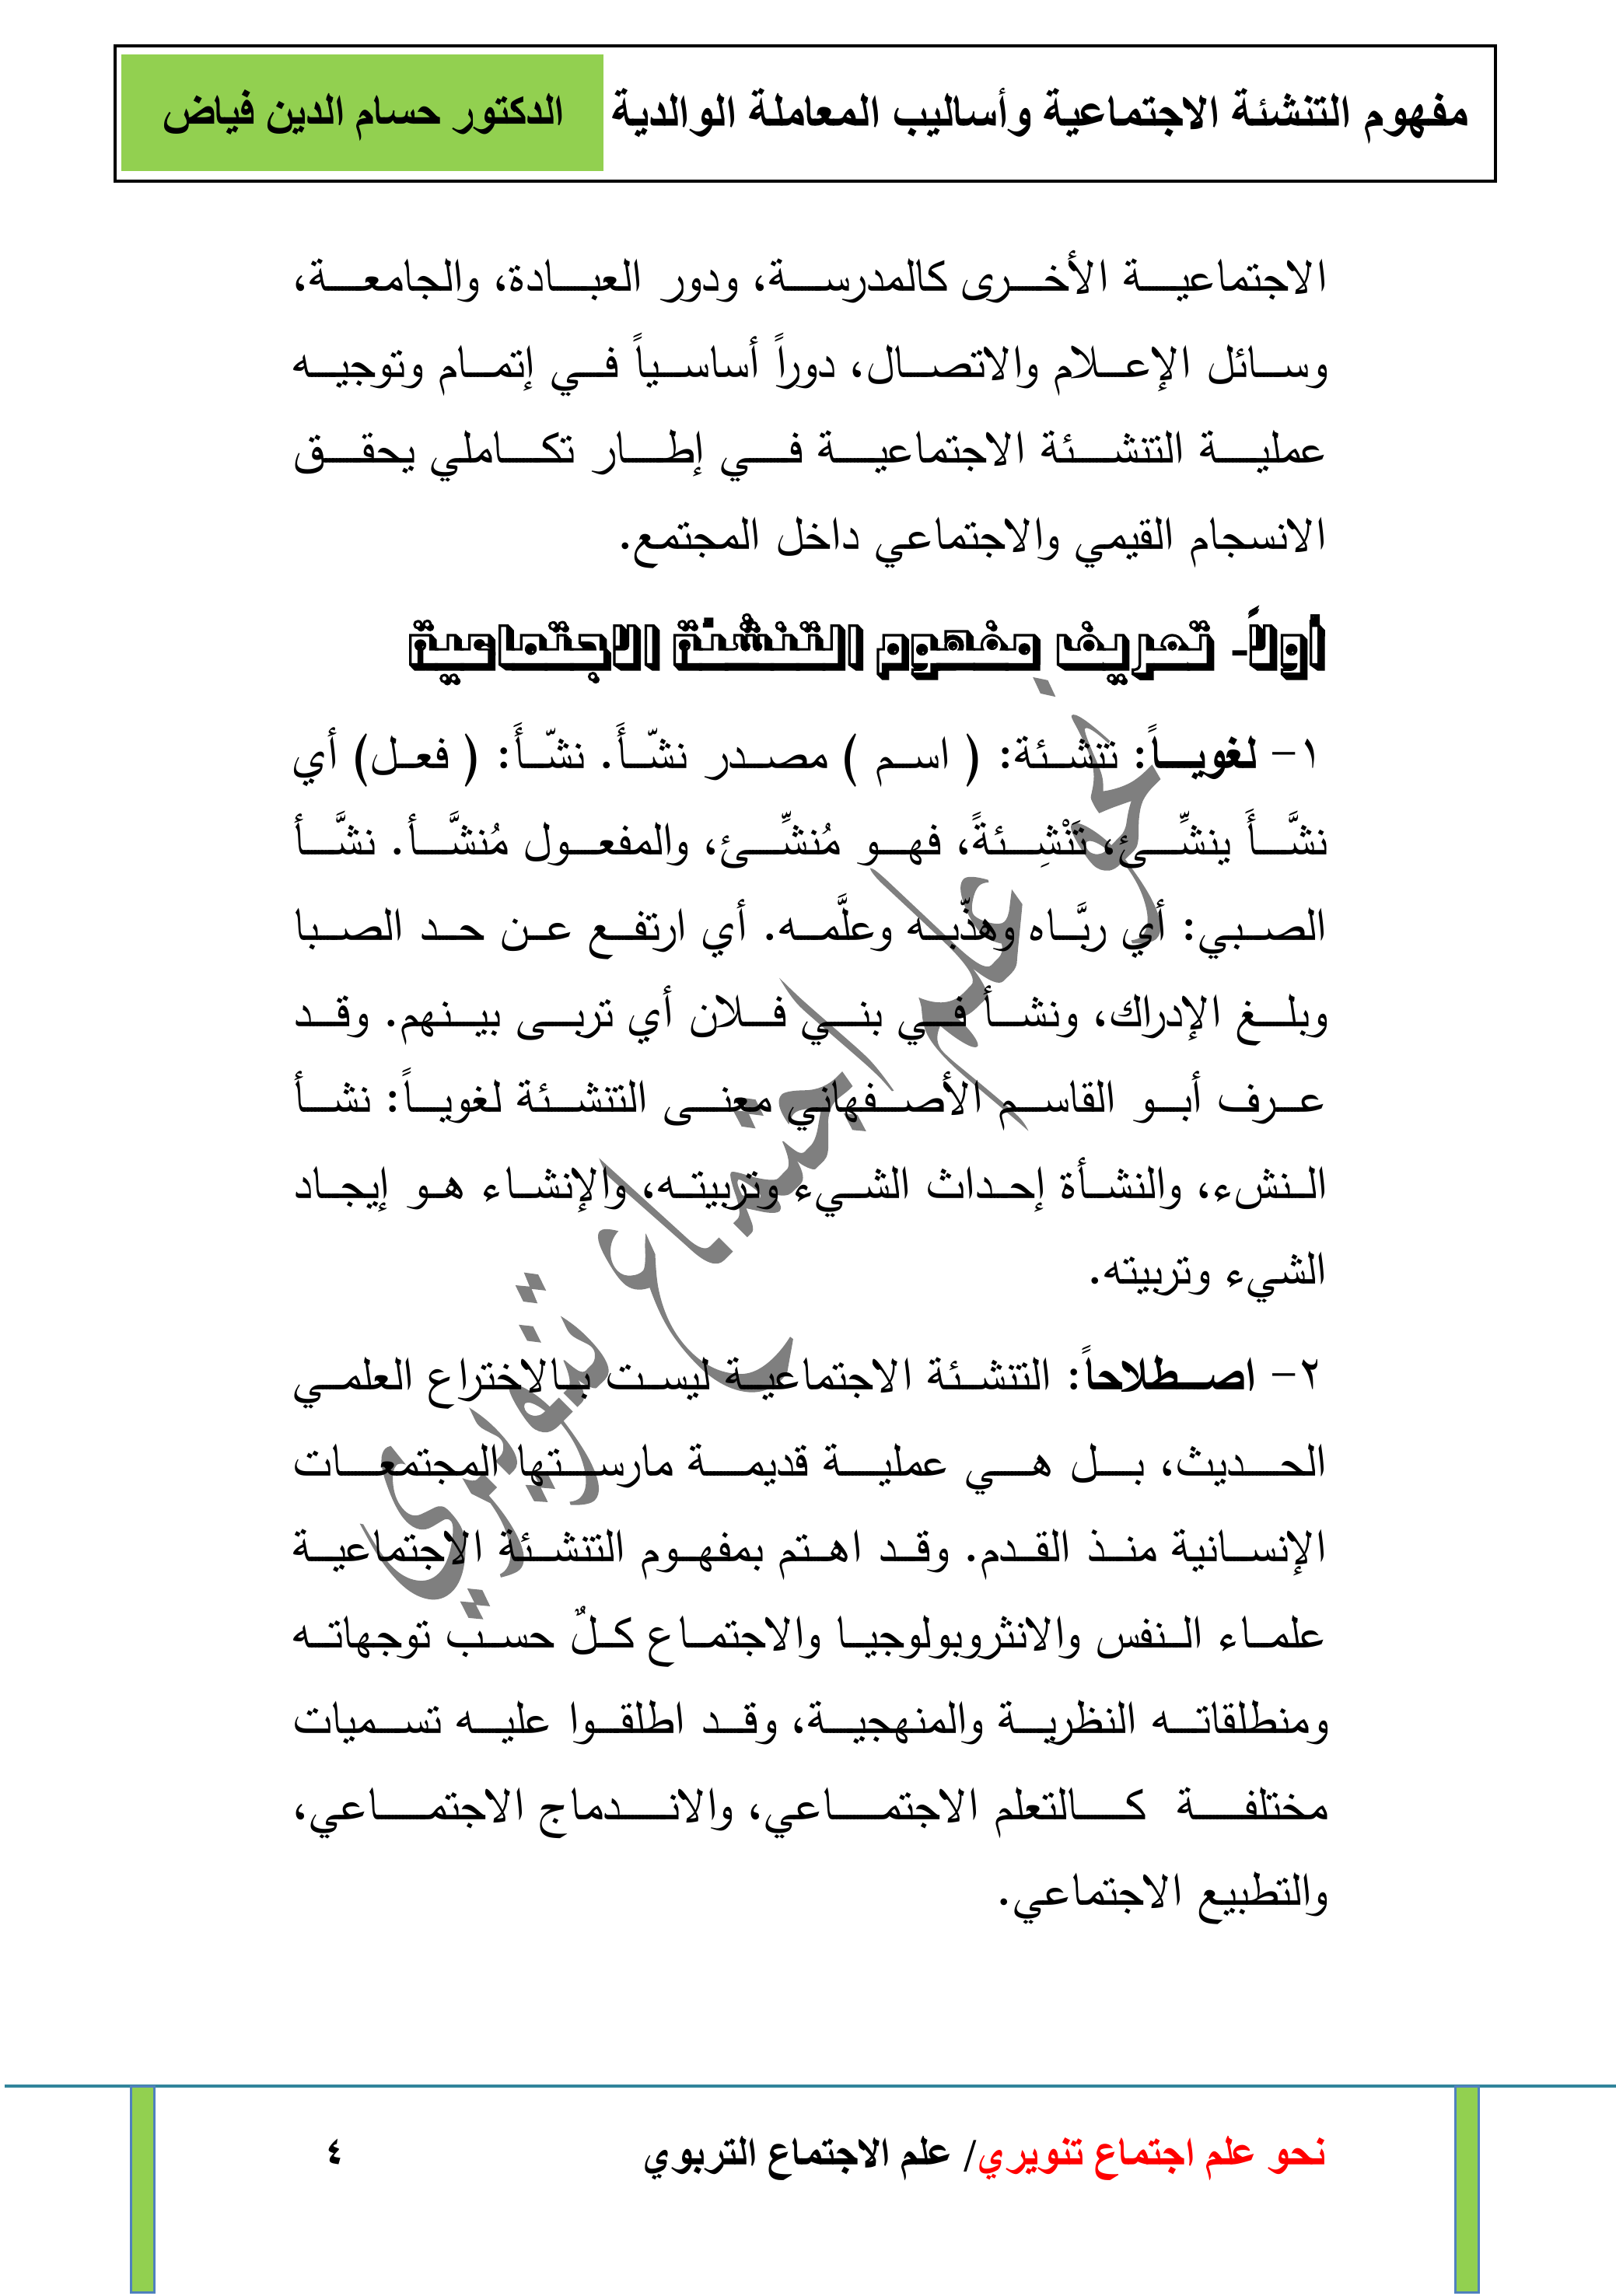 مفهوم التنشئة الاجتماعية وأساليب المعاملة الوالدية الدكتور حسام الدين فياض
الاجتماعية الأخرى كالمدرسة، ودور العبادة، والجامعة،
وسائل الإعلام والاتصال، دوراً أساسياً في إتمام وتوجيه
عملية التنشئة الاجتماعية في إطار تكاملي يحقق
الانسجام القيمي والاجتماعي داخل المجتمع.
أولاً- تعريف مفهوم التنشئة الاجتماعية
١- لغوياً: تنشئة: ( اسم ) مصدر نشّأَ. نشّأَ: ( فعل) أي
نشَّأَ ينشِّئ، تَنْشِئةً، فهو مُنشِّئ، والمفعول مُنشَّأ. نشَّأ
الصبي: أي ربَّاه وهذّبه وعلَّمه. أي ارتفع عن حد الصبا
وبلغ الإدراك، ونشأ في بني فلان أي تربى بينهم. وقد
عرف أبو القاسم الأصفهاني معنى التنشئة لغوياً: نشأ
النشء، والنشأة إحداث الشيء وتربيته، والإنشاء هو إيجاد
الشيء وتربيته.
٢- اصطلاحاً: التنشئة الاجتماعية ليست بالاختراع العلمي
الحديث، بل هي عملية قديمة مارستها المجتمعات
الإنسانية منذ القدم. وقد اهتم بمفهوم التنشئة الاجتماعية
علماء النفس والانثروبولوجيا والاجتماع كلٌ حسب توجهاته
ومنطلقاته النظرية والمنهجية، وقد اطلقوا عليه تسميات
مختلفة كالتعلم الاجتماعي، والاندماج الاجتماعي،
والتطبيع الاجتماعي.
نحو علم اجتماع تنويري
نحو علم اجتماع تنويري/ علم الاجتماع التربوي ٤